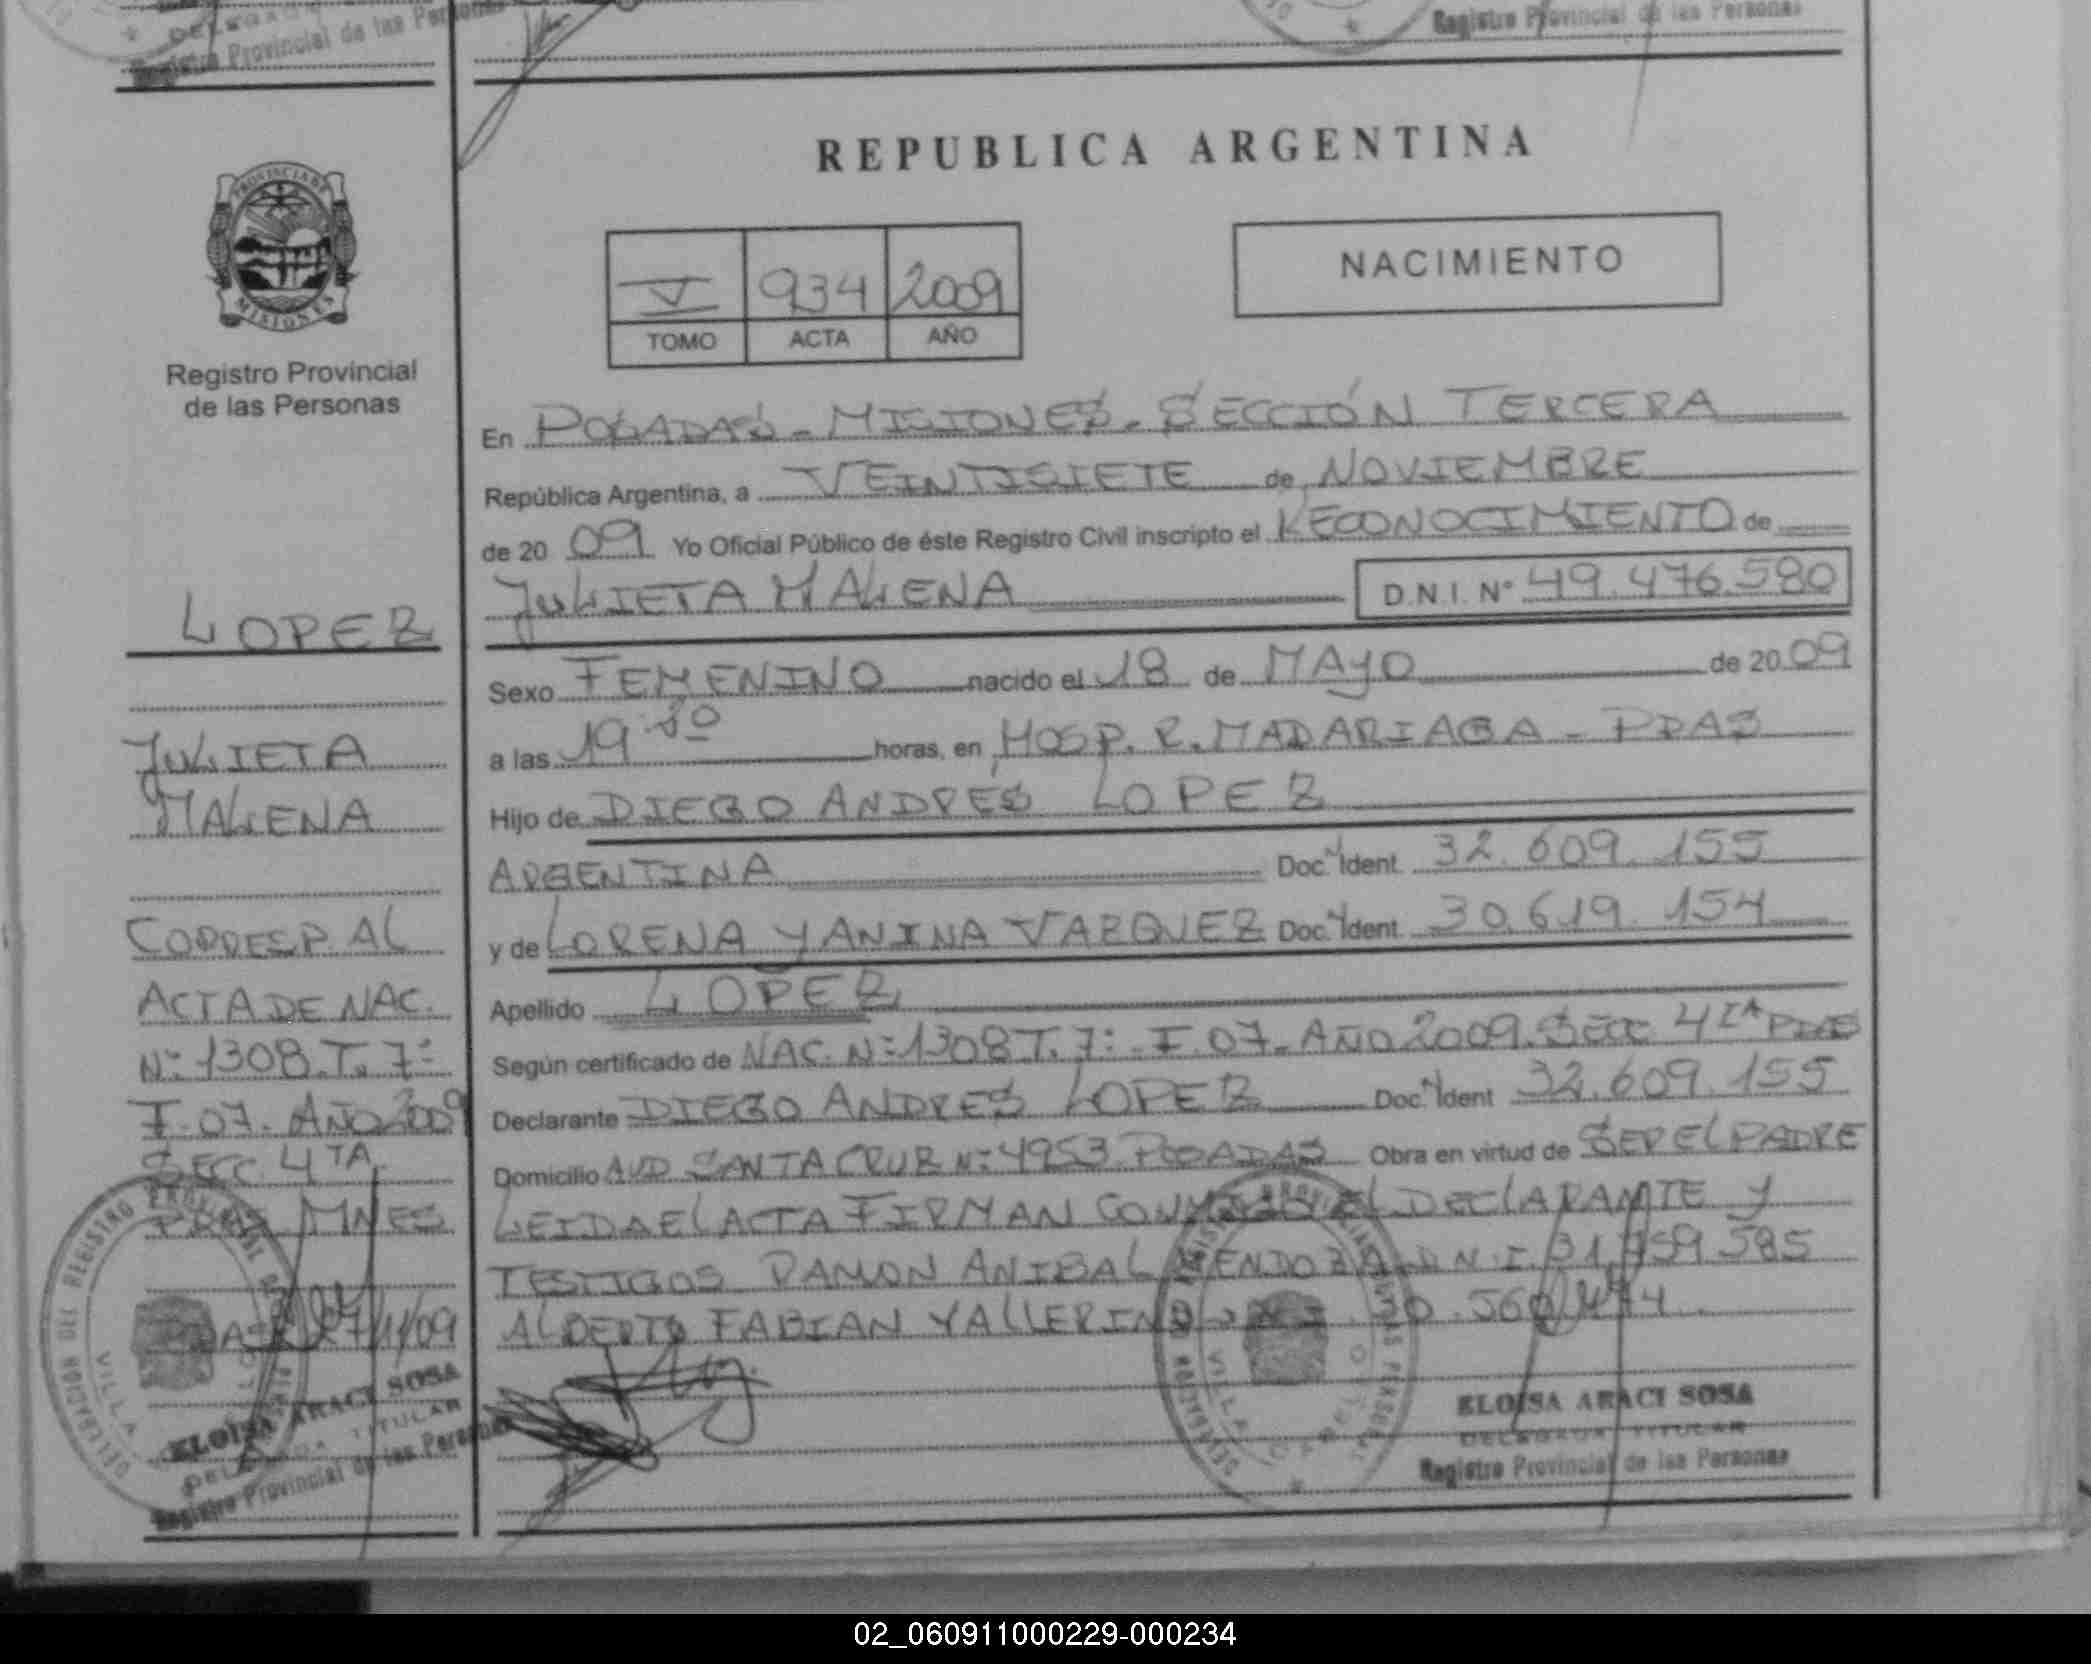 Registro Provincial de las Personas
Registro Provincial de las Personas
PROVINCIA DE
MISIONES
Registro Provincial
de las Personas
LOPEZ
JULIETA
MALENA
CORRESP. AL
ACTA DE NAC.
Nº 1308. T. 7º
F. 07. AÑO 2009
SECC. 4TA
PDAS MNES
PDAS 27/11/09
ELOISA ARACI SOSA
DELEGADA TITULAR
Registro Provincial de las Personas
REPUBLICA ARGENTINA
V 934 2009
TOMO ACTA AÑO
NACIMIENTO
En POSADAS - MISIONES - SECCIÓN TERCERA
República Argentina, a VEINTISIETE de NOVIEMBRE
de 20 09 Yo Oficial Público de éste Registro Civil inscripto el RECONOCIMIENTO de
JULIETA MALENA D.N.I. Nº 49.476.580
Sexo FEMENINO nacido el 18 de MAYO de 20 09
a las 19 horas, en HOSP. R. MADARIAGA - PDAS
Hijo de DIEGO ANDRES LOPEZ
ARGENTINA Doc. Ident. 32.609.155
y de LORENA YANINA VAZQUEZ Doc. Ident. 30.619.154
Apellido LOPEZ
Según certificado de NAC. Nº 1308 T. 7º F. 07 - AÑO 2009. SECC 4TA PDAS
Declarante DIEGO ANDRES LOPEZ Doc. Ident 32.609.155
Domicilio AVD. SANTA CRUZ Nº 4953 POSADAS Obra en virtud de SER EL PADRE
LEIDA EL ACTA FIRMAN CONMIGO EL DECLARANTE Y
TESTIGOS RAMON ANIBAL MENDOZA D.N.I. 31.959.585
ALBERTO FABIAN YALLERINO 30.560
ELOISA ARACI SOSA
DELEGADA TITULAR
Registro Provincial de las Personas
02_060911000229-000234